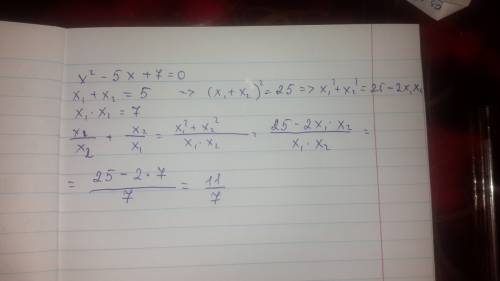 x² - 5x + 7 = 0
x₁ + x₂ = 5 => (x₁ + x₂)² = 25 => x₁² + x₂² = 25 - 2x₁x₂
x₁ · x₂ = 7
x₂/x₂ + x₂/x₁ = (x₁² + x₂²)/(x₁ · x₂) = (25 - 2x₁ · x₂)/(x₁ · x₂) =
= (25 - 2 · 7)/7 = 11/7